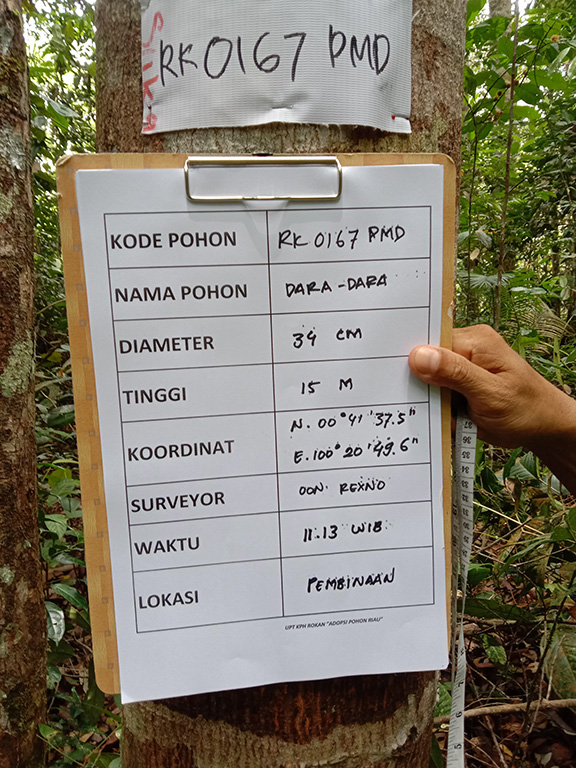 RK0167 PMD
KODE POHON RK 0167 PMD
NAMA POHON DARA-DARA
DIAMETER 34 CM
TINGGI 15 M
KOORDINAT N. 00°41'37.5"
E.100°20'49.6"
SURVEYOR OON. REXNO
WAKTU 11.13 WIB
LOKASI PEMBINAAN
UPT KPH ROKAN "ADOPSI POHON RIAU"